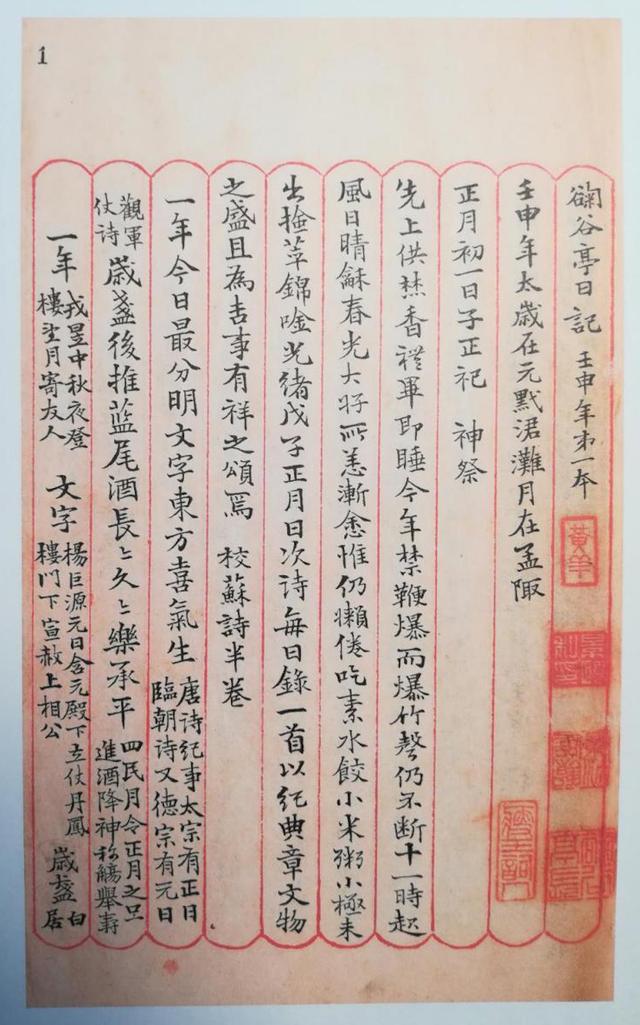 1
鞠谷亭日記 壬申年第一本
壬申年太歲在元黓涒灘月在孟陬
正月初一日子正祀 神祭
先上供焚香禮畢即睡今年禁鞭爆而爆竹聲仍不斷十一時起
風日晴龢春光大好所恙漸愈惟仍懶倦吃素水餃小米粥小極未
出撿莘錦唫光緒戊子正月日次詩每日錄一首以紀典章文物
之盛且為吉事有祥之頌焉 校蘇詩半卷
一年今日最分明文字東方喜氣生 唐詩紀事太宗有正日
臨朝詩又德宗有元日
觀軍
仗詩 歲盞後推藍尾酒長〻久〻樂承平 四民月令正月之旦
進酒降神称觴舉壽
一年 戎昱中秋夜登
樓望月寄友人 文字 楊巨源元日含元殿下立仗丹鳳
樓門下宣赦上相公 歲盞 白
居
黃羊